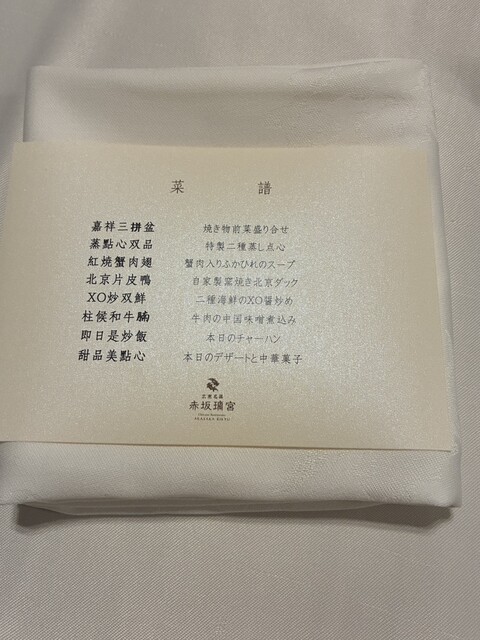 菜 譜
嘉祥三拼盆 焼き物前菜盛り合せ
蒸點心双品 特製二種蒸し点心
紅焼蟹肉翅 蟹肉入りふかひれのスープ
北京片皮鴨 自家製窯焼き北京ダック
XO炒双鮮 二種海鮮のXO醤炒め
柱候和牛腩 牛肉の中国味噌煮込み
即日是炒飯 本日のチャーハン
甜品美點心 本日のデザートと中華菓子
赤坂璃宮